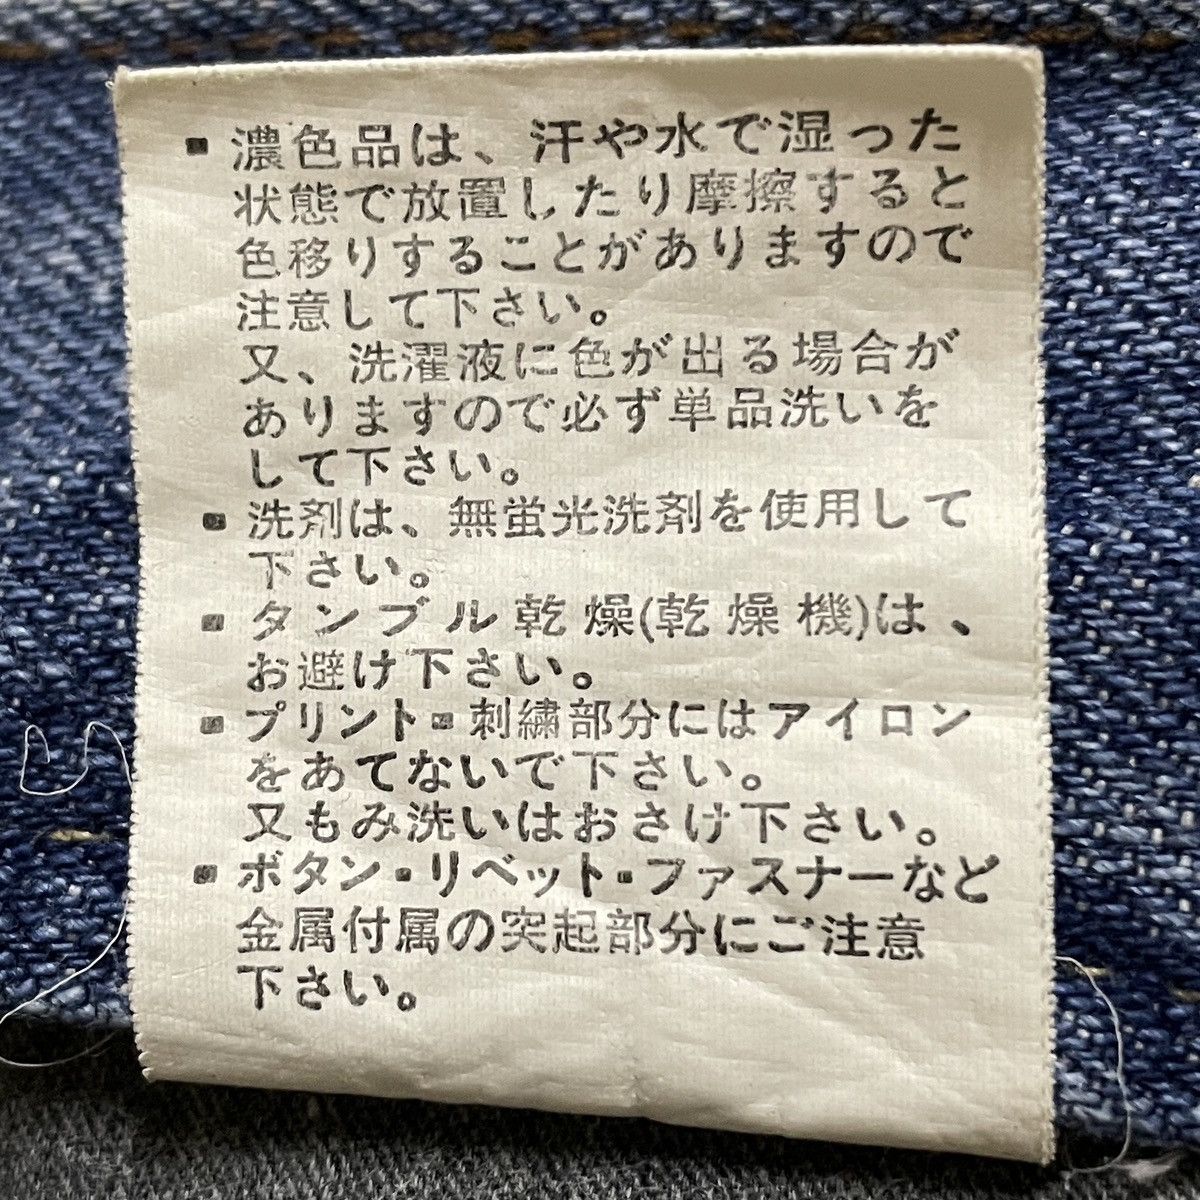 ▪濃色品は、汗や水で湿った
状態で放置したり摩擦すると
色移りすることがありますので
注意して下さい。
又、洗濯液に色が出る場合が
ありますので必ず単品洗いを
して下さい。
▪洗剤は、無蛍光洗剤を使用して
下さい。
▪タンブル乾燥(乾燥機)は、
お避け下さい。
▪プリント▪刺繍部分にはアイロン
をあてないで下さい。
又もみ洗いはおさけ下さい。
▪ボタン▪リベット▪ファスナーなど
金属付属の突起部分にご注意
下さい。